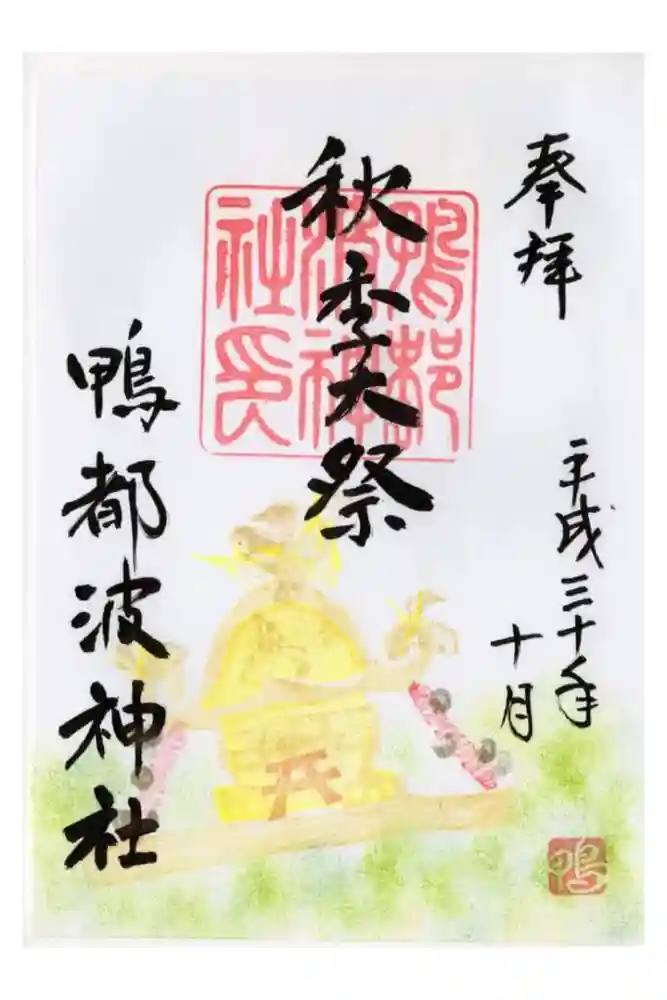 奉拝
平成三十年
十月
秋季大祭
鴨都波神社印
鴨都波神社
鴨